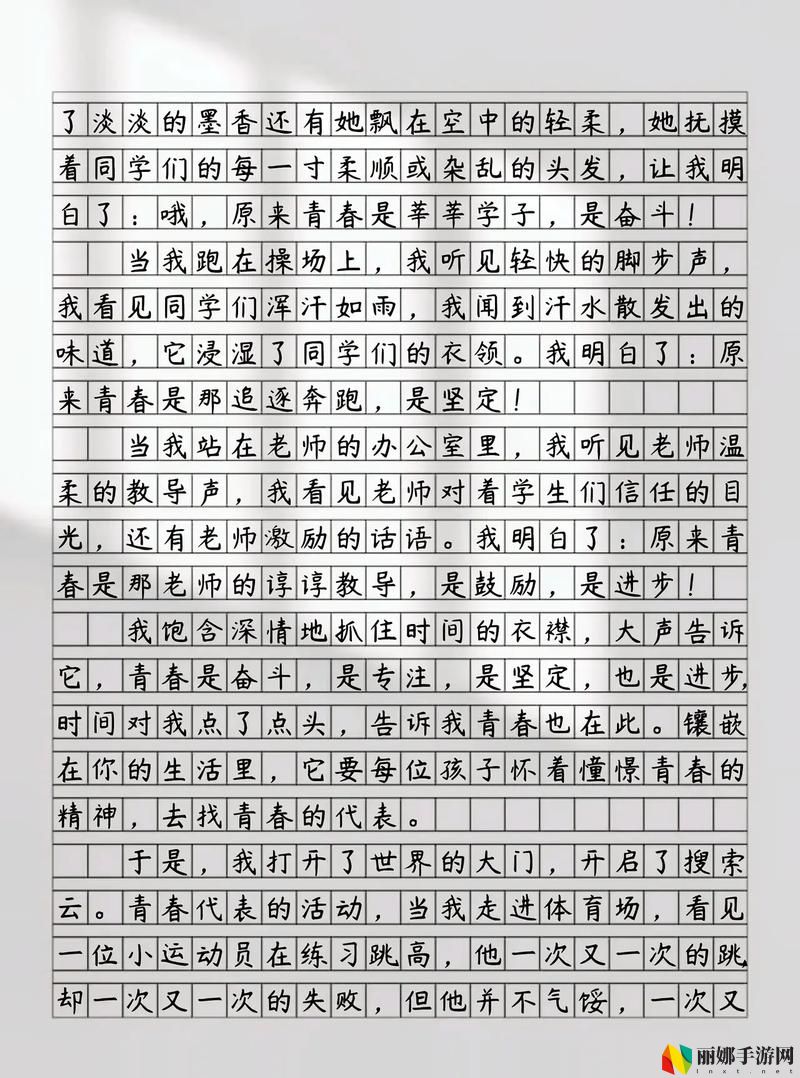 了淡淡的墨香还有她飘在空中的轻柔，她抚摸
着同学们的每一寸柔顺或杂乱的头发，让我明
白了：哦，原来青春是莘莘学子，是奋斗！
当我跑在操场上，我听见轻快的脚步声，
我看见同学们浑汗如雨，我闻到汗水散发出的
味道，它浸湿了同学们的衣领。我明白了：原
来青春是那追逐奔跑，是坚定！
当我站在老师的办公室里，我听见老师温
柔的教导声，我看见老师对着学生们信任的目
光，还有老师激励的话语。我明白了：原来青
春是那老师的谆谆教导，是鼓励，是进步！
我饱含深情地抓住时间的衣襟，大声告诉
它，青春是奋斗，是专注，是坚定，也是进步，
时间对我点了点头，告诉我青春也在此。镶嵌
在你的生活里，它要每位孩子怀着憧憬青春的
精神，去找青春的代表。
于是，我打开了世界的大门，开启了搜索
云。青春代表的活动，当我走进体育场，看见
一位小运动员在练习跳高，他一次又一次的跳，
却一次又一次的失败，但他并不气馁，一次又
丽娜手游网
lnxt.net